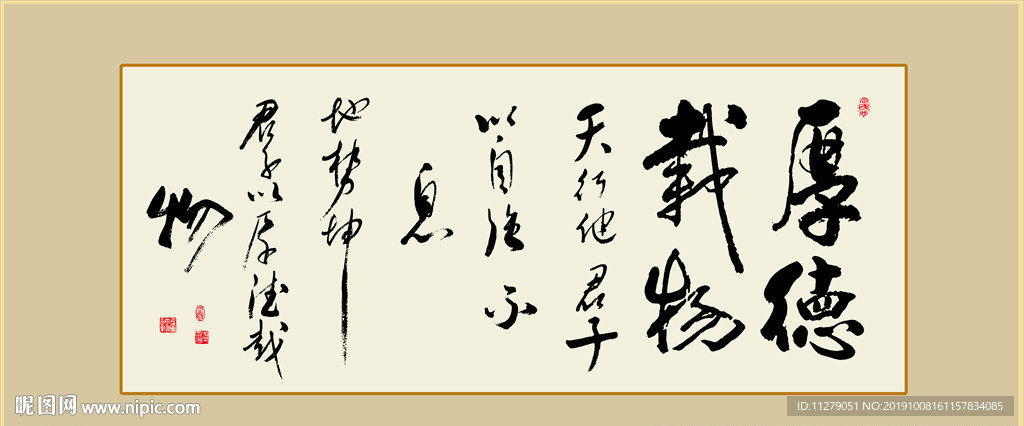 厚德
載物
天行健君子
以自强不
息
地势坤
君子以厚德载
物
昵图网 www.nipic.com
ID:11279051 NO:20191008161157834085